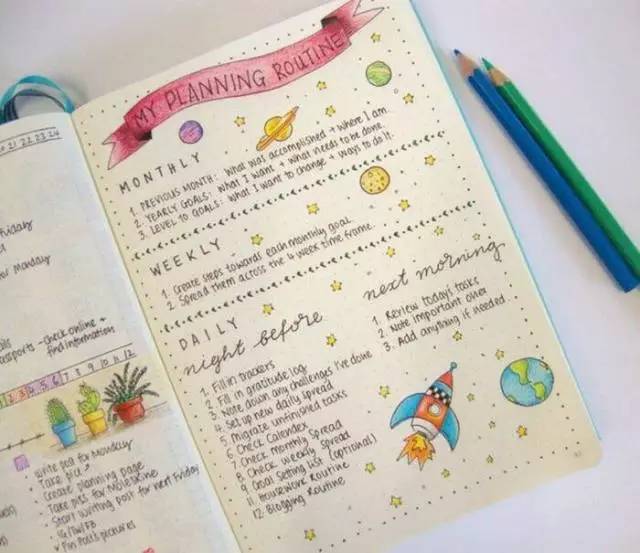 MY PLANNING ROUTINE
MONTHLY
1. PREVIOUS MONTH: what was accomplished + where I am.
2. YEARLY GOALS: what I want + what needs to be done.
3. LEVEL 10 GOALS: what I want to change + ways to do it.
WEEKLY
1. Create steps towards each monthly goal.
2. Spread them across the 4 week time frame.
DAILY
night before
1. Fill in trackers
2. Fill in gratitude log
3. Note down any challenges I've done
4. Set up new daily spread
5. Migrate unfinished tasks
6. Check Calendex
7. Check monthly spread
8. Check weekly spread
9. Goal Setting List (optional)
11. Housework Routine
12. Blogging Routine
next morning
1. Review today's tasks
2. Note important ones
3. Add anything if needed
20 21 22 23 24
Friday
or Monday
- check online +
find information
3 4 5 6 7 8 9 10 11 12
Write post for Monday
Take pic
Create planning page
Take pics for
Start writing post for next Friday
IG/TW/FB
pictures